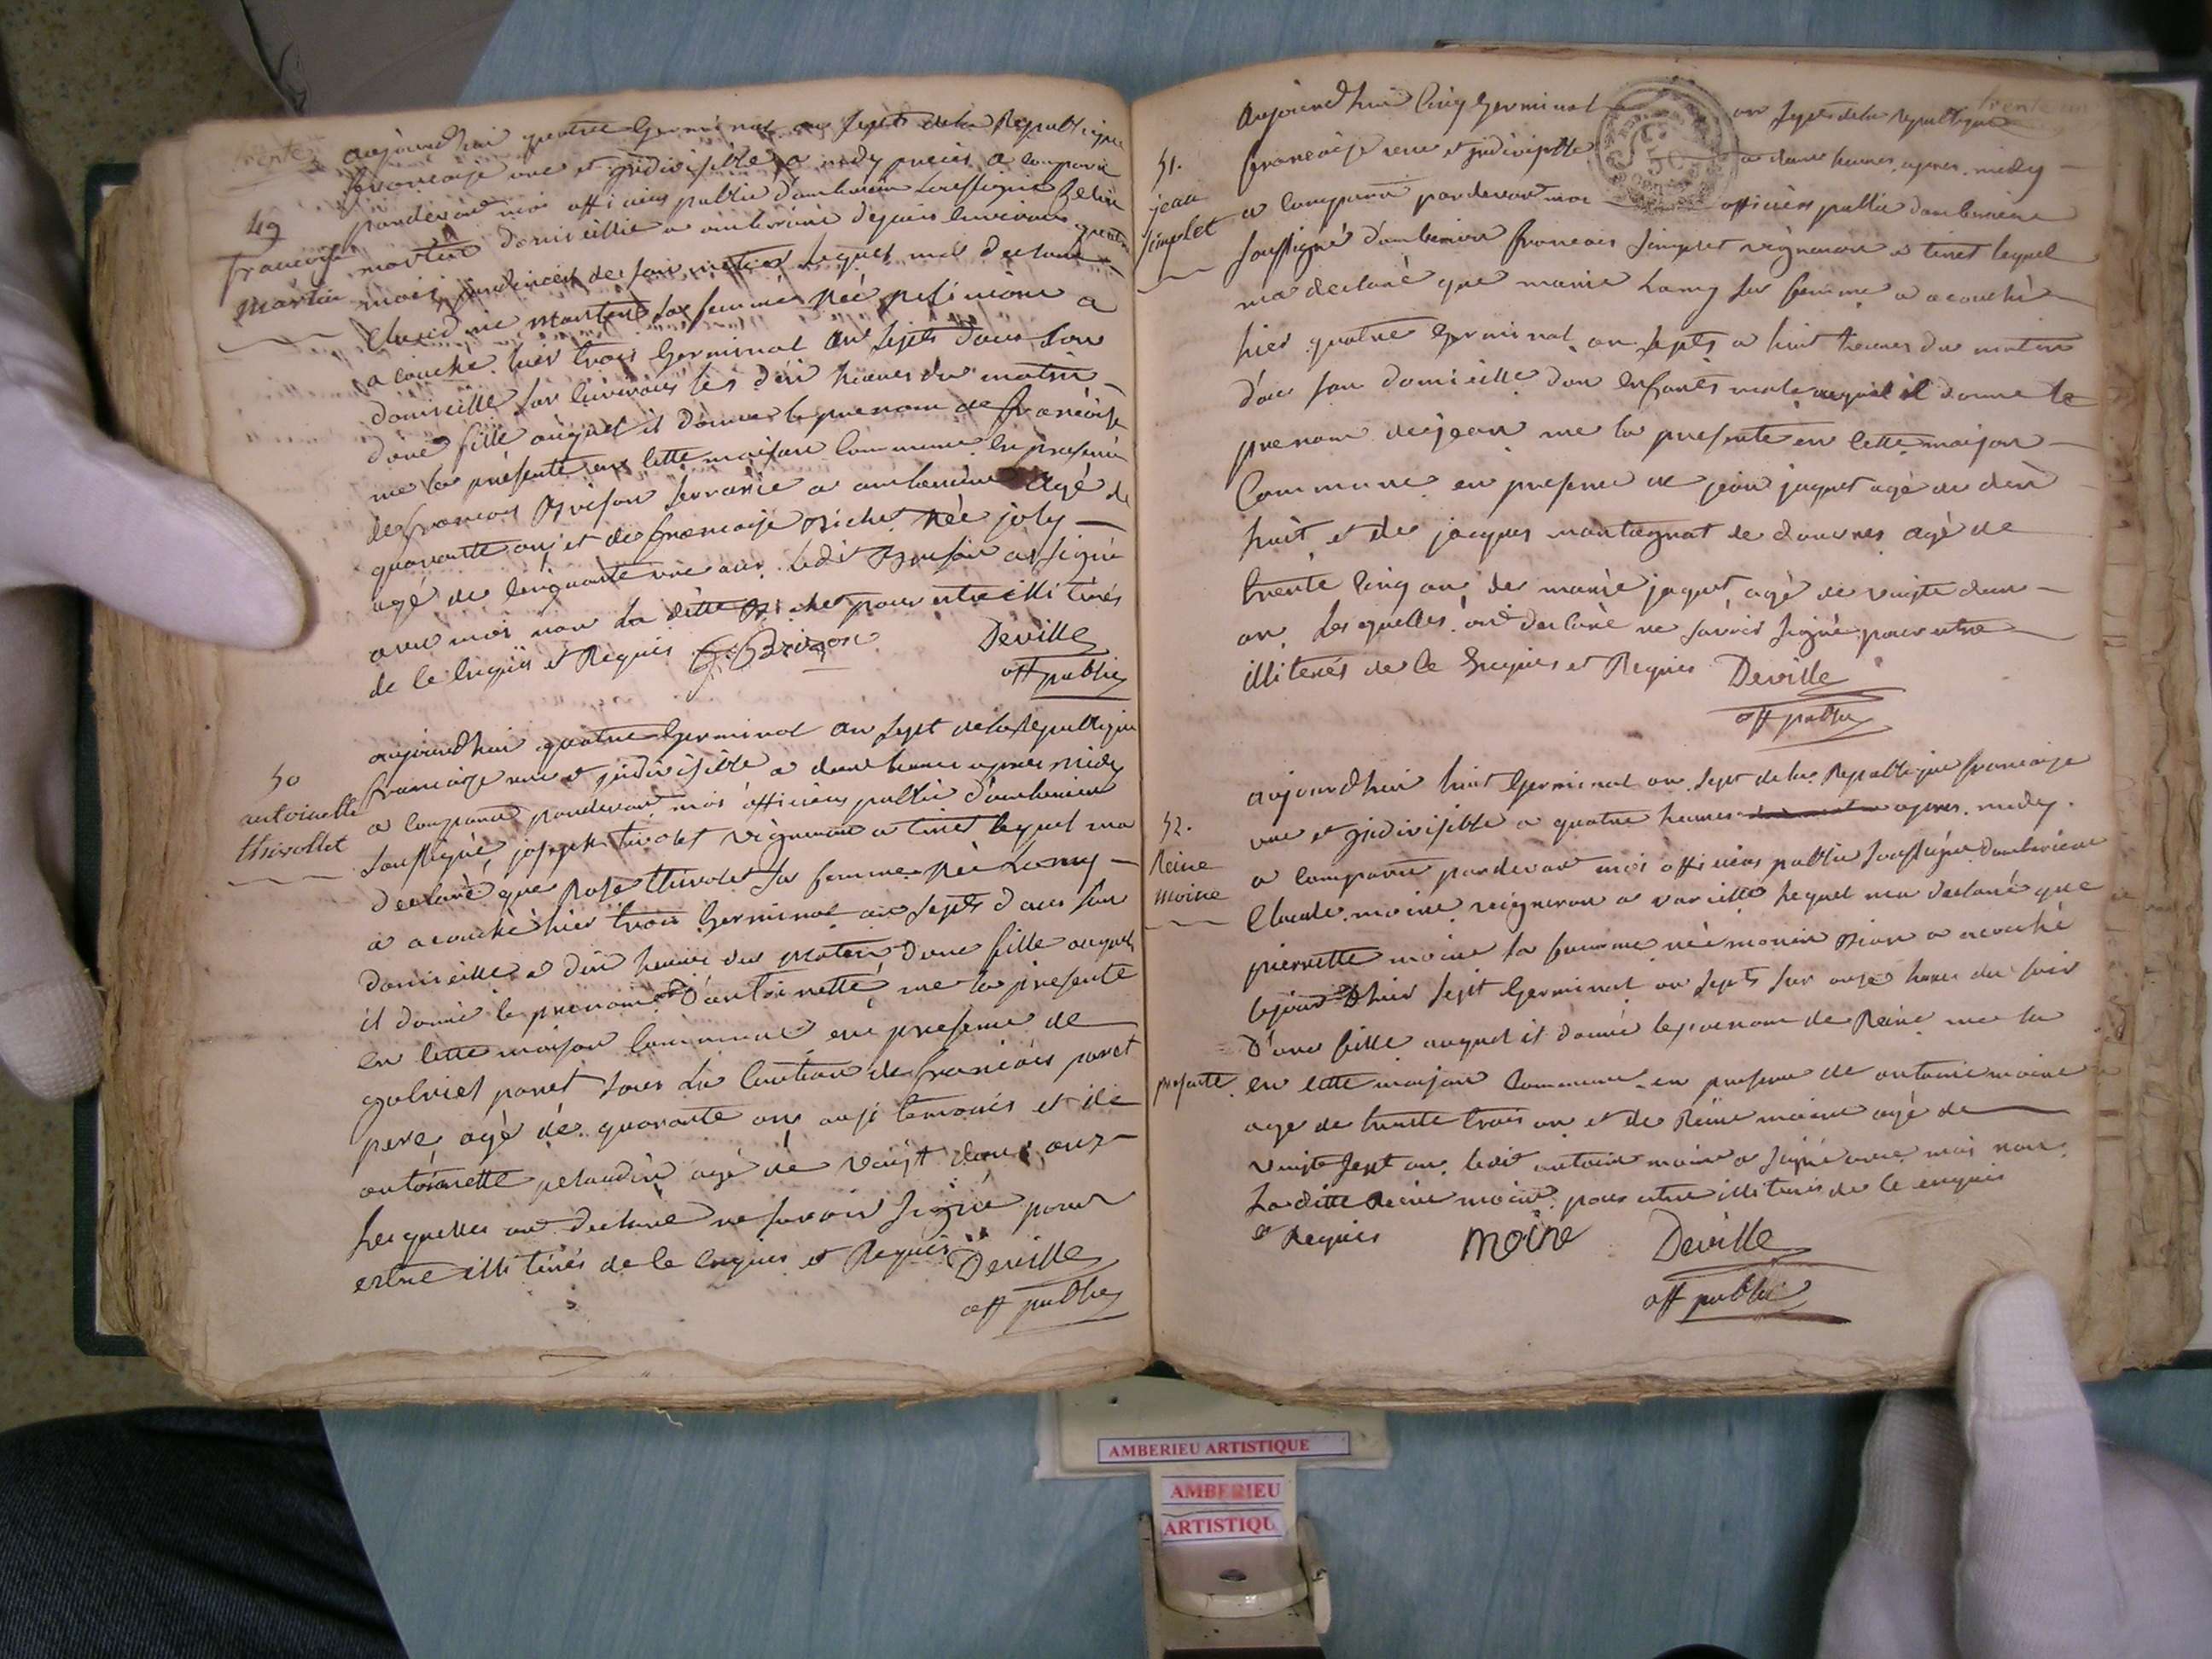 trente
49
francoise
martin
aujourd'hui quatre Germinal an septs de la Republique
francaise une et jndivisible a midy precis a comparu
pardevant moi officiers public d'amberieu soussigné
martin domicillié a amberieu depuis environs quatre
mois de son metier lequel ma declaré
que martin sa femme née a
acouché hier trois Germinal an septs dans son
domicille sur environs les dix heures du matin
d'une fille auquel il donne le prenom de francoise
me la presente en cette maison commune en presence
de francois Brison a amberieu agé de
quarante ans et de francoise Bichet née joly
agé de cinquante une ans ledit Brison a signé
avec moi non la ditte Bichet pour etre illiterés
de ce enquis et Requis f. Brizon Deville
off public
50
antoinette
thivollet
aujourdhui quatre Germinal an sept de la Republique
francaise une et jndivisible a deux heures apres midy
a comparu pardevant moi officiers public d'amberieu
soussigné, joseph tivolet vigneron a tiret lequel ma
declaré que Rose thivolet sa femme née Lamy
a acouché hier trois Germinal an septs dans son
domicille a dix heures du matin d'une fille auquel
il donne le prenom d'antoinette, me la presente
en cette maison commune en presence de
gabriel ponet sous la caution de francois ponet
pere agé de quarante ans aussi temoins et de
antoinette agé de vingt deux ans
Lesquelles ont declaré ne savoir signé pour
estre illiterés de ce enquis et Requis Deville
off public
trente un
51.
jean
simplet
Aujourdhui cinq Germinal an septs de la Republique
francaise une et jndivisible a deux heures apres midy
a comparu pardevant moi officiers public damberieu
soussigné d'amberieu francois simplet vigneron a tiret lequel
ma declaré que marie Lamy sa femme a acouché
hier quatre Germinal an septs a huit heures du matin
dans son domicille d'un enfants male auquel il donne le
prenom de jean me la presente en cette maison
Commune en presence de jean jaquet agé de dix
huit et de jacques montagnat de douvres agé de
trente cinq ans de marie jaquet agé de vingte deux
an Lesquelles ont declaré ne savoir signé pour etre
illiterés de ce Enquis et Requis Deville
off public
52.
Reine
moine
aujourdhui huit Germinal an sept de la Republique francaise
une et jndivisible a quatre heures apres midy.
a comparu pardevant moi officiers public soussigné damberieu
Claude moine vigneron a vareille lequel ma declaré que
pierrette moine sa femme née a acouché
le jour d'hier sept Germinal an septs sur onze heures du soir
D'une fille auquel il donné le prenom de Reine me la
presente en cette maison commune en presence de antoine moine
agé de trente trois an et de Reine moine agé de
vingte sept an. ledit antoine moine a signé avec moi non
La ditte Reine moine pour etre illiterés de ce enquis
et Requis moine Deville
off public
AMBERIEU ARTISTIQUE
AMBERIEU
ARTISTIQU